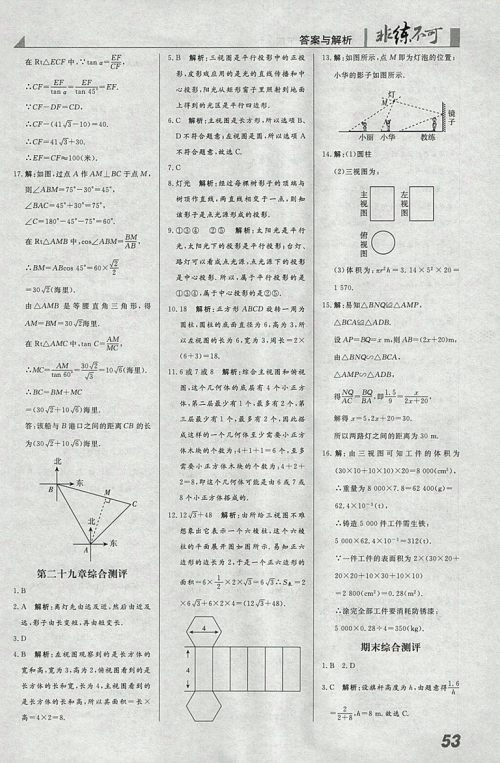 答案与解析 非练不可
在Rt△ECF中,∵tan α=EF/CF,
∴CF=EF/tan α=EF/tan 45°=EF.
∵CF-DF=CD,
∴CF-(41√3-10)=40.
∴CF=41√3+30.
∴EF=CF≈100(米).
17.解:如图,过点A作AM⊥BC于点M,
则∠ABM=75°-30°=45°,
∠BAC=45°+30°=75°,
∠C=180°-45°-75°=60°.
在Rt△AMB中,cos∠ABM=BM/AB,
∴BM=ABcos 45°=60×√2/2
=30√2(海里).
由△AMB是等腰直角三角形,得
AM=BM=30√2海里.
在Rt△AMC中,tan C=AM/MC,
∴MC=AM/tan 60°=30√2/√3=10√6(海里).
∴BC=BM+MC
=(30√2+10√6)海里.
答:该船与B港口之间的距离CB的长
为(30√2+10√6)海里.
北
东
B
M
C
北
A
东
第二十九章综合测评
1.B
2.A 解析:离灯光由远及近,然后由近及
远,影子由长变短,再由短变长.
3.D
4.B 解析:左视图观察到的是长方体的
宽和高,宽为3,高为2,俯视图看到的是
长方体的长和宽,长为4,主视图看到的
是长方体的长和高,所以其面积=长×
高=4×2=8.
5.B 解析:三视图是平行投影中的正投
影,皮影戏应用的是光的直线传播和中
心投影,阳光从矩形窗子里照射到地面
上得到的光区是平行四边形.
6.C 解析:主视图是长方形,所以选项B、
D不符合题意;左视图是圆,所以选项A
不符合题意,故选C.
7.C
8.灯光 解析:经过每棵树影子的顶端与
树顶作直线,两直线相交于一点,则知
该影子是点光源形成的投影.
9.①③④ ②⑤ 解析:太阳光是平行
光,太阳光下的投影是平行投影;台灯、
路灯可以看成点光源,点光源下的投影
是中心投影.所以,属于平行投影的是
①③④,属于中心投影的是②⑤.
10.18 解析:正方形ABCD旋转一周为
圆柱,圆柱的底面直径为6,高为3,所
以左视图的长为6,宽为3,周长=2×
(6+3)=18.
11.6或7或8 解析:综合主视图和俯视
图,这个几何体的底层有4个小正方
体,第二层最少有1个,最多有2个,第
三层最少有1个,最多有2个,因此搭
成这样的一个几何体至少需要小正方
体木块的个数为:4+1+1=6个,至多
需要小正方体木块的个数为:4+2+
2=8,即这个几何体可能是由6或7或
8个小正方体搭成的.
12.12√3+48 解析:由所给三视图不难
想象出它表示一个六棱柱,这个六棱
柱的平面展开图如图所示.易知正六
边形的边长为2,于是一个正六边形的
面积=6×1/2×2×√3=6√3∴S全=2
×6√3+6×2×4=(12√3+48).
4
4
13.解:如图所示,点M即为灯泡的位置;
小华的影子如图所示.
灯
M
镜子
小丽 小华 教练
14.解:(1)圆柱
(2)三视图为:
主视图
左视图
俯视图
(3)体积为:πr²h=3.14×5²×20=
1 570.
15.解:易知△BNQ≌△AMP,
△BCA≌△ADB.
设AP=BQ=x m,则AB=(2x+20)m,
由△BNQ∽△BCA,
△AMP∽△ADB,
得NQ/AC=BQ/BA,即1.5/9=x/2x+20,
解得x=5.2x+20=30.
所以两路灯之间的距离为30 m.
16.解:由三视图可知工件的体积为
(30×10+10×10)×20=8 000(cm³),
∴重量为8 000×7.8=62 400(g)=
62.4×10⁻³(t),
∴铸造5 000件工件需生铁:
5 000×62.4×10⁻³=312(t).
∵一件工件的表面积为2×(30×20+
20×20+10×30+10×10)
=2 800(cm²)=0.28(m²).
∴涂完全部工件要消耗防锈漆:
5 000×0.28÷4=350(kg).
期末综合测评
1.B 2.D
3.C 解析:设旗杆高度为h,由题意得1.6/h
=2/2+8,h=8 m.故选C.
53